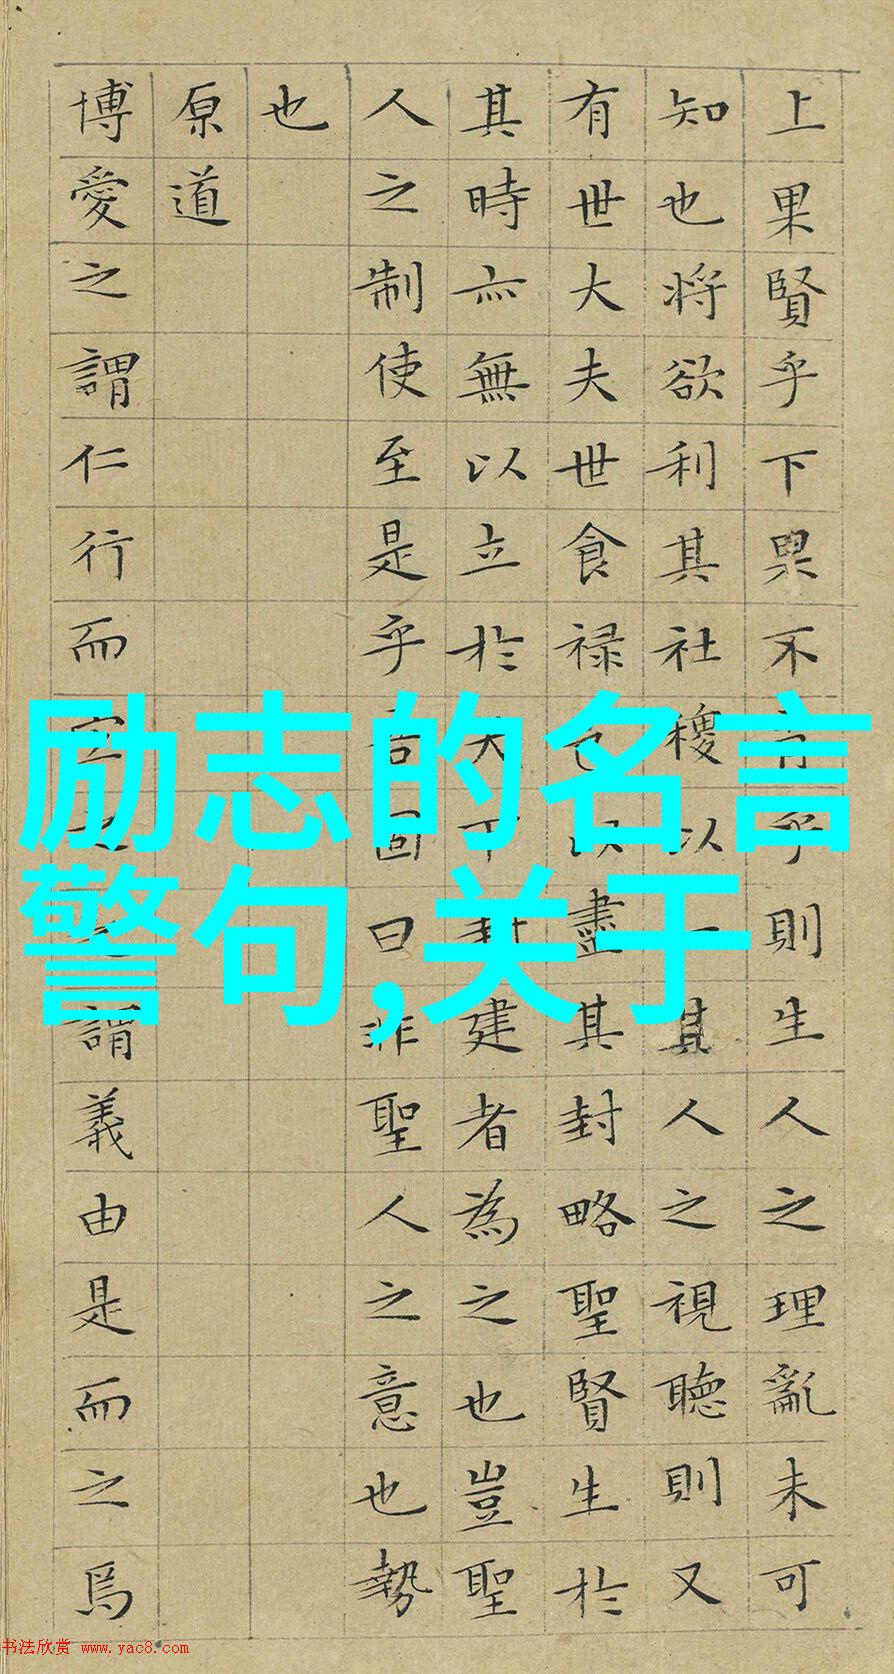 上果賢乎下果不肖乎則生人之理亂未可
知也将欲利其社稷以一其人之視聽則又
有世大夫世食禄邑以盡其封略聖賢生於
其時亦無以立於天下封建者為之也豈聖
人之制使至是乎吾固曰非聖人之意也勢
也
原道
博愛之謂仁行而宜之之謂義由是而之焉
励志的名言
警句,关于
书法欣赏 www.yac8.com